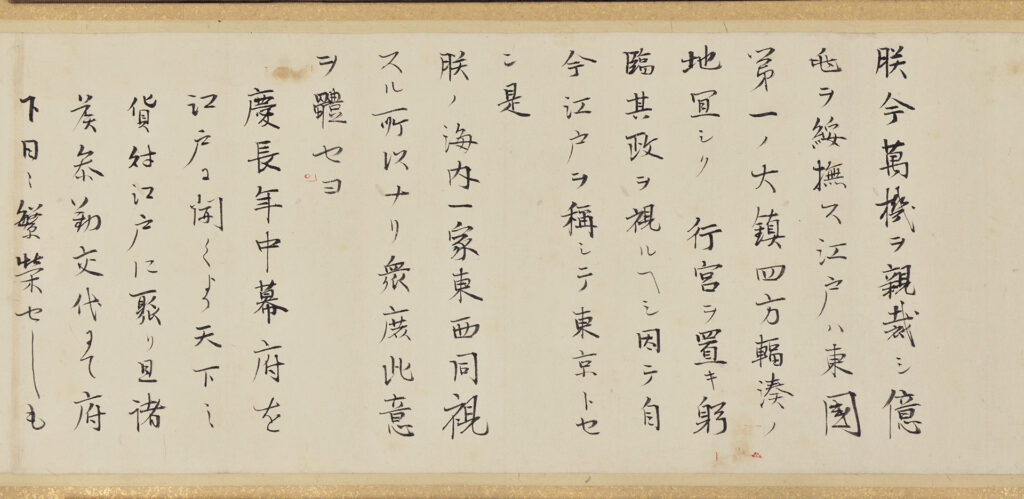 朕今萬機ヲ親裁シ億
兆ヲ綏撫ス江戸ハ東國
第一ノ大鎮四方輻湊ノ
地冝シク 行宮ヲ置キ躬
臨其政ヲ視ルヘシ因テ自
今江戸ヲ稱シテ東京トセ
ン是
朕ノ海内一家東西同視
スル所以ナリ衆庶此意
ヲ體セヨ
慶長年中幕府を
江戸に開くより天下之
貨財江戸に聚り且諸
侯参勤交代にて府
下日々繁榮せしも